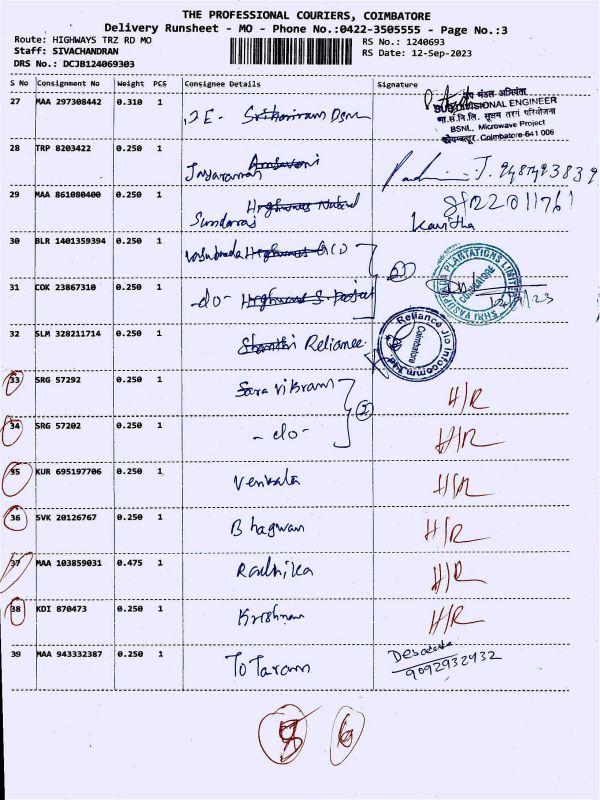 THE PROFESSIONAL COURIERS, COIMBATORE
Delivery Runsheet - MO - Phone No.:0422-3505555 - Page No.:3
Route: HIGHWAYS TRZ RD MO
RS No.: 1240693
Staff: SIVACHANDRAN
RS Date: 12-Sep-2023
DRS No.: DCJB124069303
S No Consignment No Weight PCS Consignee Details Signature
27 MAA 297308442 0.310 1
उप मंडल अभियंता
SUB DIVISIONAL ENGINEER
भा.सं.नि.लि. सूक्ष्म तरंग परियोजना
BSNL, Microwave Project
कोयम्बत्तूर Coimbatore-641 006
28 TRP 8203422 0.250 1 Jayaraman
29 MAA 861080400 0.250 1 Sundaraj Kavitha
30 BLR 1401359394 0.250 1
SHRI VASUPUJYA PLANTATIONS LIMITED
COIMBATORE
31 COK 23867310 0.250 1 -do-
32 SLM 328211714 0.250 1 Reliance
Reliance Jio Infocomm Ltd
Coimbatore
33 SRG 57292 0.250 1 Sara Vikram H/R
34 SRG 57202 0.250 1 - do - H/R
35 KUR 695197706 0.250 1 Venkata H/R
36 SVK 20126767 0.250 1 Bhagwan H/R
37 MAA 103859031 0.475 1 Radhika H/R
38 KDI 870473 0.250 1 Krishnan H/R
39 MAA 943332387 0.250 1 To Taram
9092932432
6